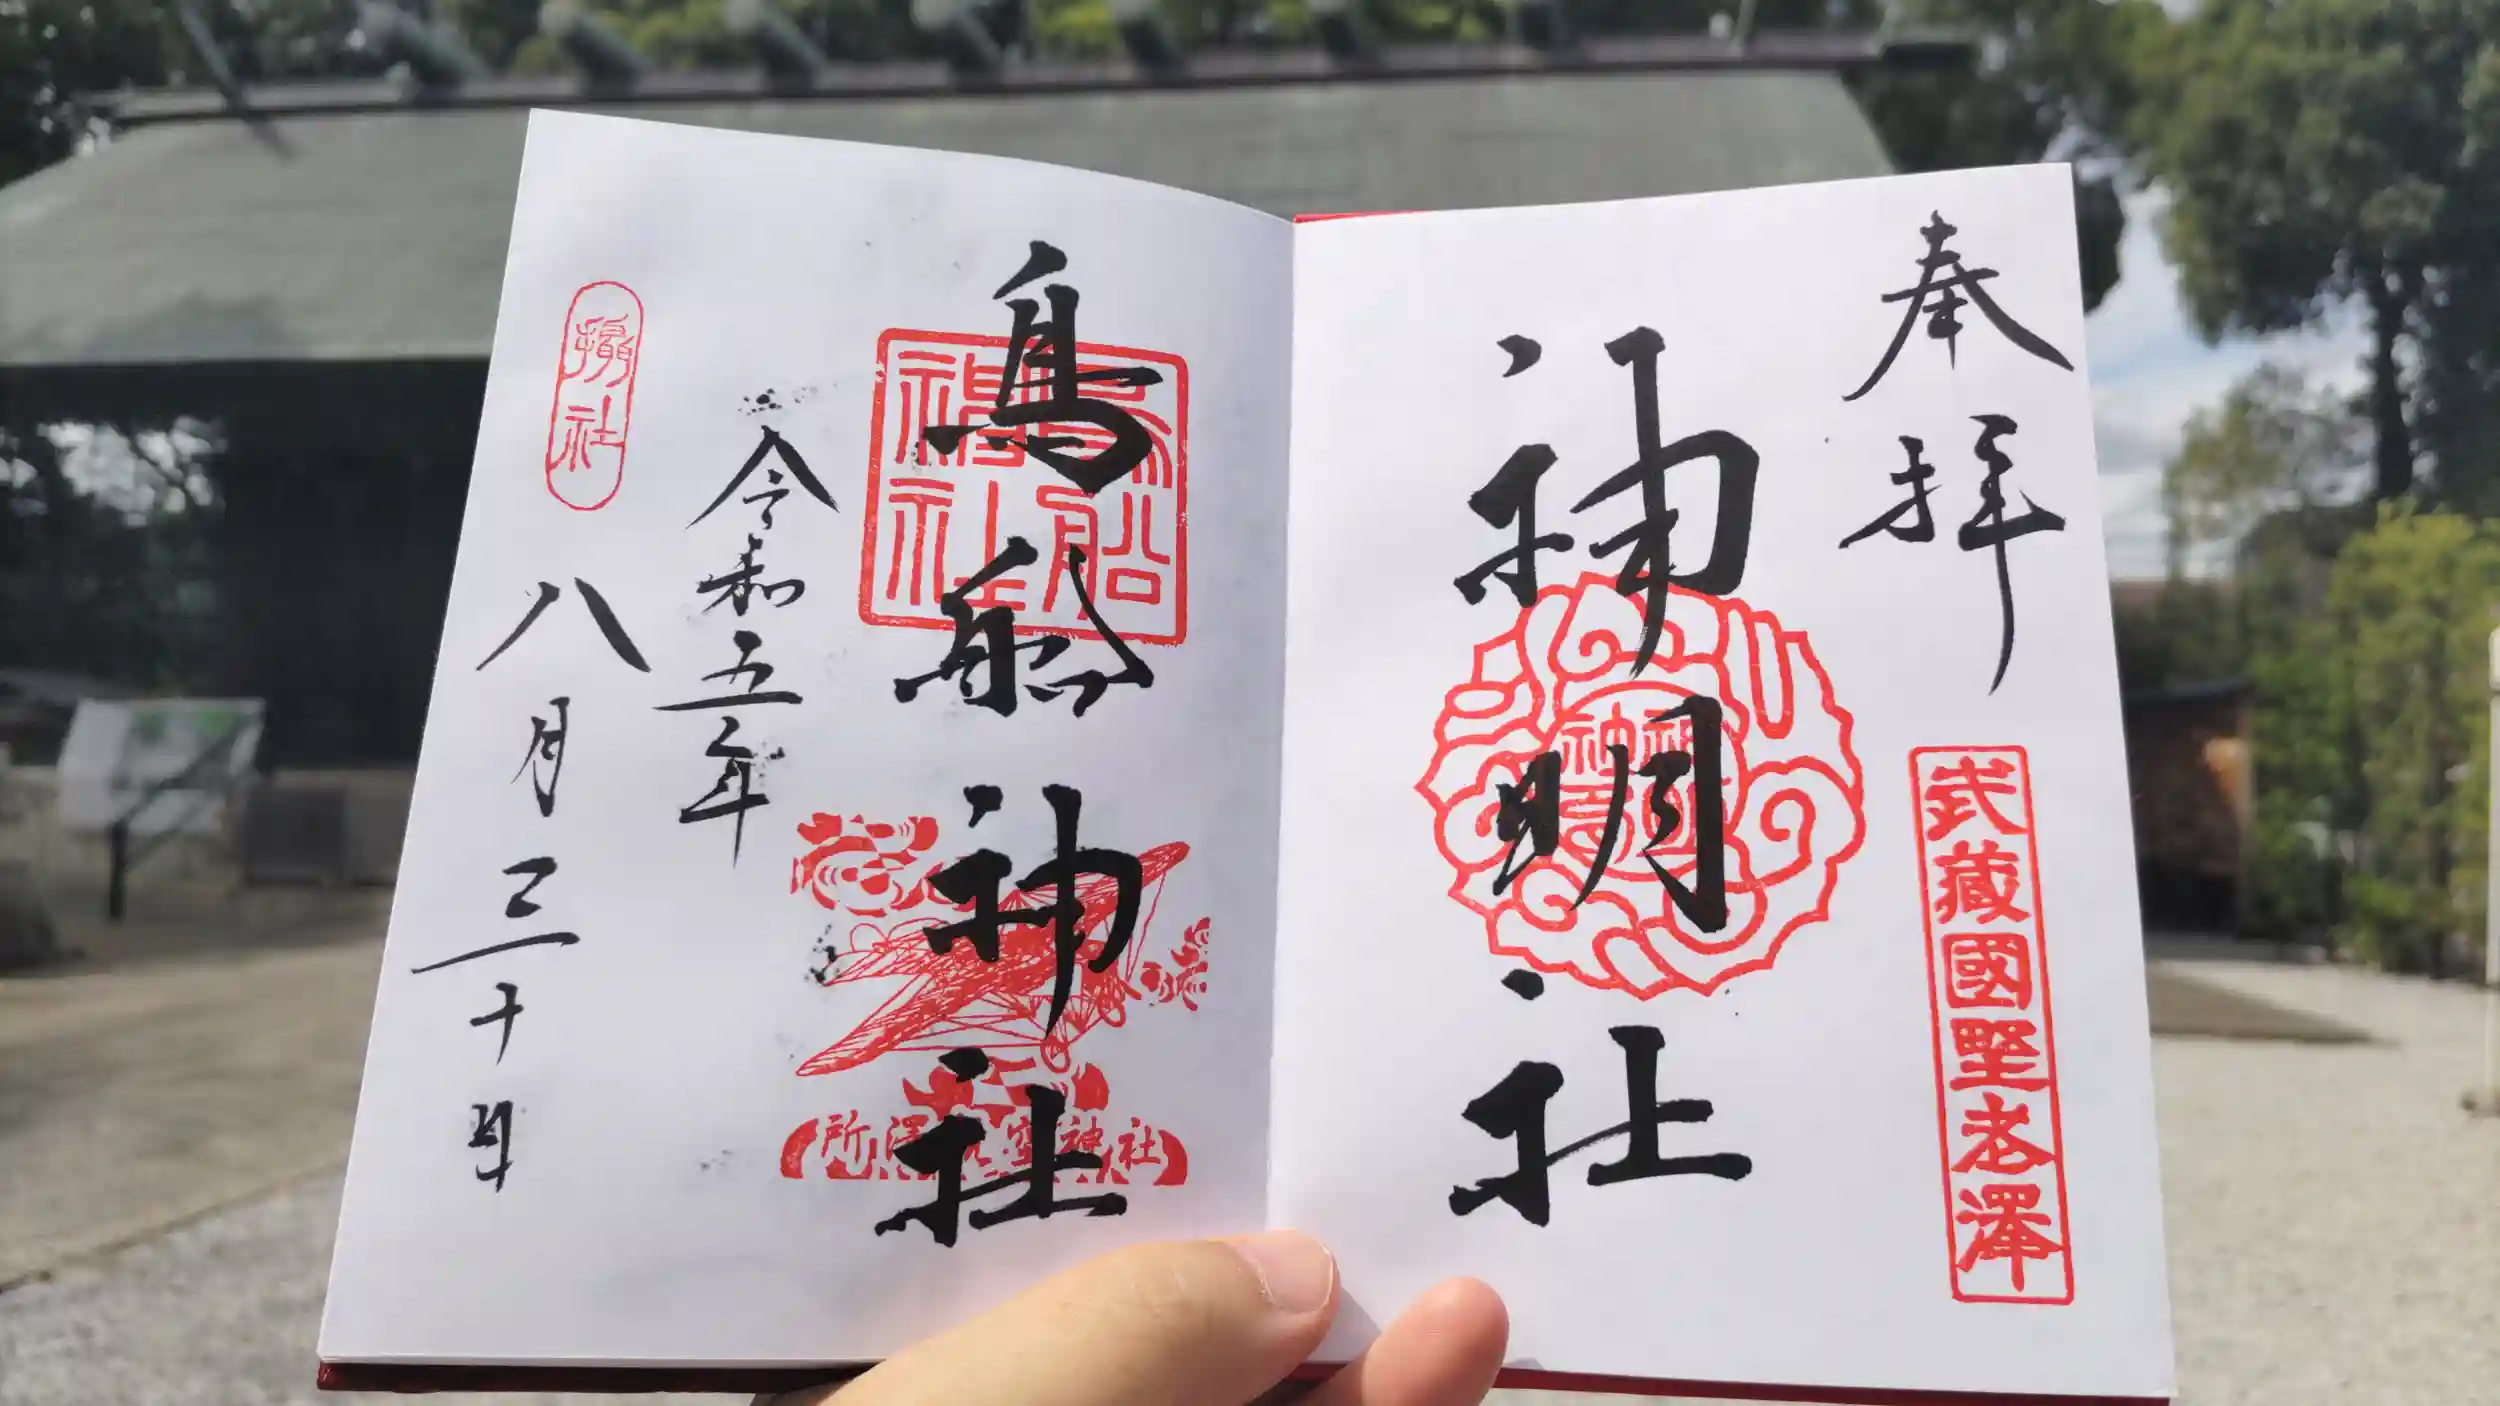 奉拝
武藏國野老澤
神明社
鳥船神社
鳥船神社
所澤航空神社
令和五年
八月三十日
摂社